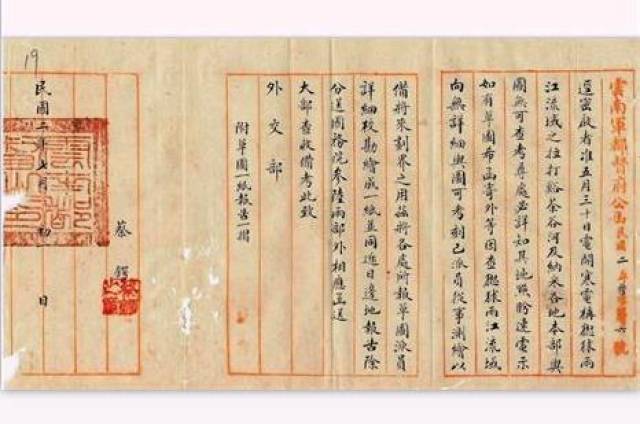 雲南軍都督府公函民國二年曾字第六號
逕密啟者准五月三十日電開寒電稱懋球兩
江流域之拉打谿茶谷河及納米各地本部輿
圖無可查考尊處必詳知其地照盼速電示
如有草圖希函寄外等因查懋球兩江流域
向無詳細輿圖可考刻已派員從事測繪以
備將來劃界之用茲將各處所報草圖派員
詳細校勘繪成一紙並同近日邊地報告除
分送國務院參陸兩部外相應函送
大部查收備考此致
外交部
附草圖一紙報告一摺
蔡鍔
民國二年七月初一日
19